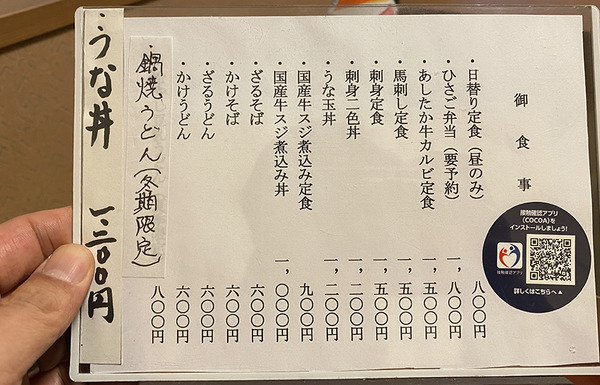 御食事
・日替り定食(昼のみ) 八〇〇円
・ひさご弁当(要予約) 一,八〇〇円
・あしたか牛カルビ定食 一,五〇〇円
・馬刺し定食 一,五〇〇円
・刺身定食 一,五〇〇円
・刺身二色丼 一,二〇〇円
・うな玉丼 一,二〇〇円
・国産牛スジ煮込み定食 九〇〇円
・国産牛スジ煮込み丼 一,〇〇〇円
・ざるそば 六〇〇円
・かけそば 六〇〇円
・ざるうどん 六〇〇円
・かけうどん 六〇〇円
・鍋焼うどん(冬期限定) 八〇〇円
・うな丼 一、三〇〇円
接触確認アプリ
(COCOA)を
インストールしましょう!
接触確認アプリ
詳しくはこちらへ▲